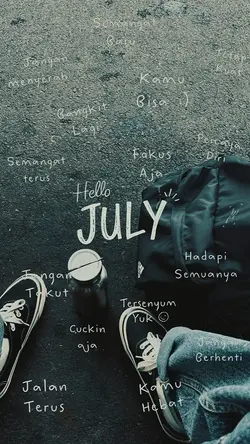 Semangat
Baru
Jangan
menyerah
Tetap
Kuat
Kamu
Bisa :)
Bangkit
Lagi
Percaya
Diri
Semangat
terus
Fokus
Aja
Hello
JULY
Hadapi
Semuanya
Jangan
Takut
Tersenyum
Yuk ☺
Cuekin
aja
Jangan
Berhenti
Jalan
Terus
Kamu
Hebat